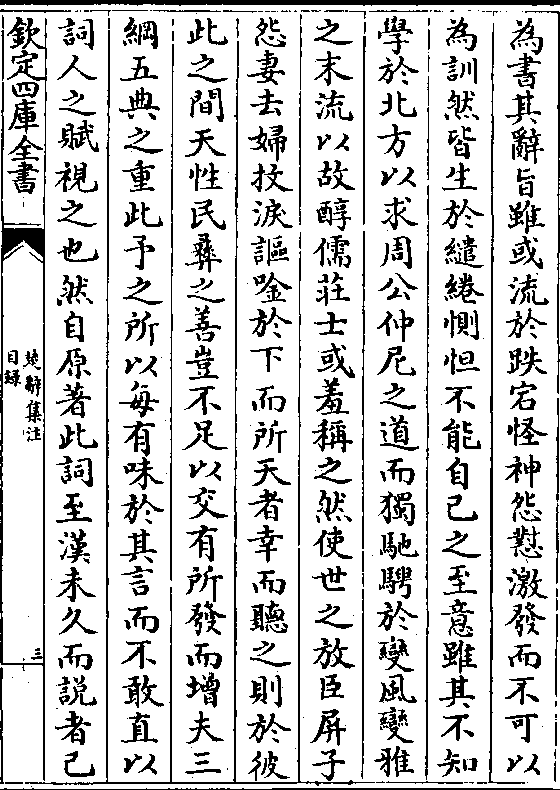 為書其辭旨雖或流於跌宕怪神怨懟激發而不可以
為訓然皆生於繾綣惻怛不能自已之至意雖其不知
學於北方以求周公仲尼之道而獨馳騁於變風變雅
之末流以故醇儒莊士或羞稱之然使世之放臣屏子
怨妻去婦抆淚謳唫於下而所天者幸而聽之則於彼
此之間天性民彝之善豈不足以交有所發而增夫三
綱五典之重此予之所以每有味於其言而不敢直以
詞人之賦視之也然自原著此詞至漢未久而說者已
欽定四庫全書
楚辭集注
目錄
三